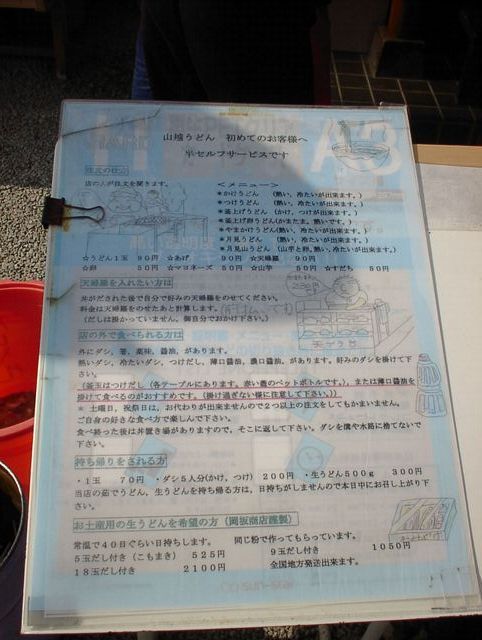 山越うどん 初めてのお客様へ
半セルフサービスです
注文の仕方
店の人が注文を聞きます。
<メニュー>
*かけうどん (熱い、冷たいが出来ます。)
*つけうどん (熱い、冷たいが出来ます。)
*釜上げうどん (かけ、つけが出来ます。)
*釜上げ卵うどん(かまたま。熱いです。)
*やまかけうどん (熱い、冷たいが出来ます。)
*月見うどん (熱い、冷たいが出来ます。)
*月見山うどん (山芋と卵,熱い,冷たいが出来ます。)
☆うどん1玉 90円 ☆あげ 90円 ☆天婦羅 90円
☆卵 50円 ☆マヨネーズ 50円 ☆山芋 50円 ☆すだち 50円
天婦羅を入れたい方は
丼がだされた後で自分で好みの天婦羅をのせてください。
料金は天婦羅をのせたあと計算します。
(だしは掛かっていません、御自分でおかけ下さい。)
天ぷら台
店の外で食べられる方は
外にダシ、箸、薬味、醤油、があります。
熱いダシ、冷たいダシ、つけだし、薄口醤油、濃口醤油、があります。好みのダシを掛けて下さい。
(釜玉はつけだし(各テーブルにあります。赤い蓋のペットボトルです。)、または薄口醤油を
掛けて食べるのがおすすめです。(掛け過ぎない様に注意して下さい。))
* 土曜日、祝祭日は、お代わりが出来ませんので2つ以上の注文をしてもかまいません。
ご自身の好きな食べ方で楽しんで下さい。
食べ終った後は丼置き場がありますので、そこに返して下さい。ダシを溝や水路に捨てないで
下さい。
持ち帰りをされる方
・1玉 70円 ・ダシ5人分(かけ、つけ) 200円 ・生うどん500g 300円
当店の茹でうどん、生うどんを持ち帰る方は、日持ちがしませんので本日中にお召し上がり下
さい。
お土産用の生うどんを希望の方 (岡坂商店謹製)
常温で40日ぐらい日持ちします。 同じ粉で作ってもらっています。
5玉だし付き (こもまき) 525円 9玉だし付き 1050円
18玉だし付き 2100円 全国地方発送出来ます。